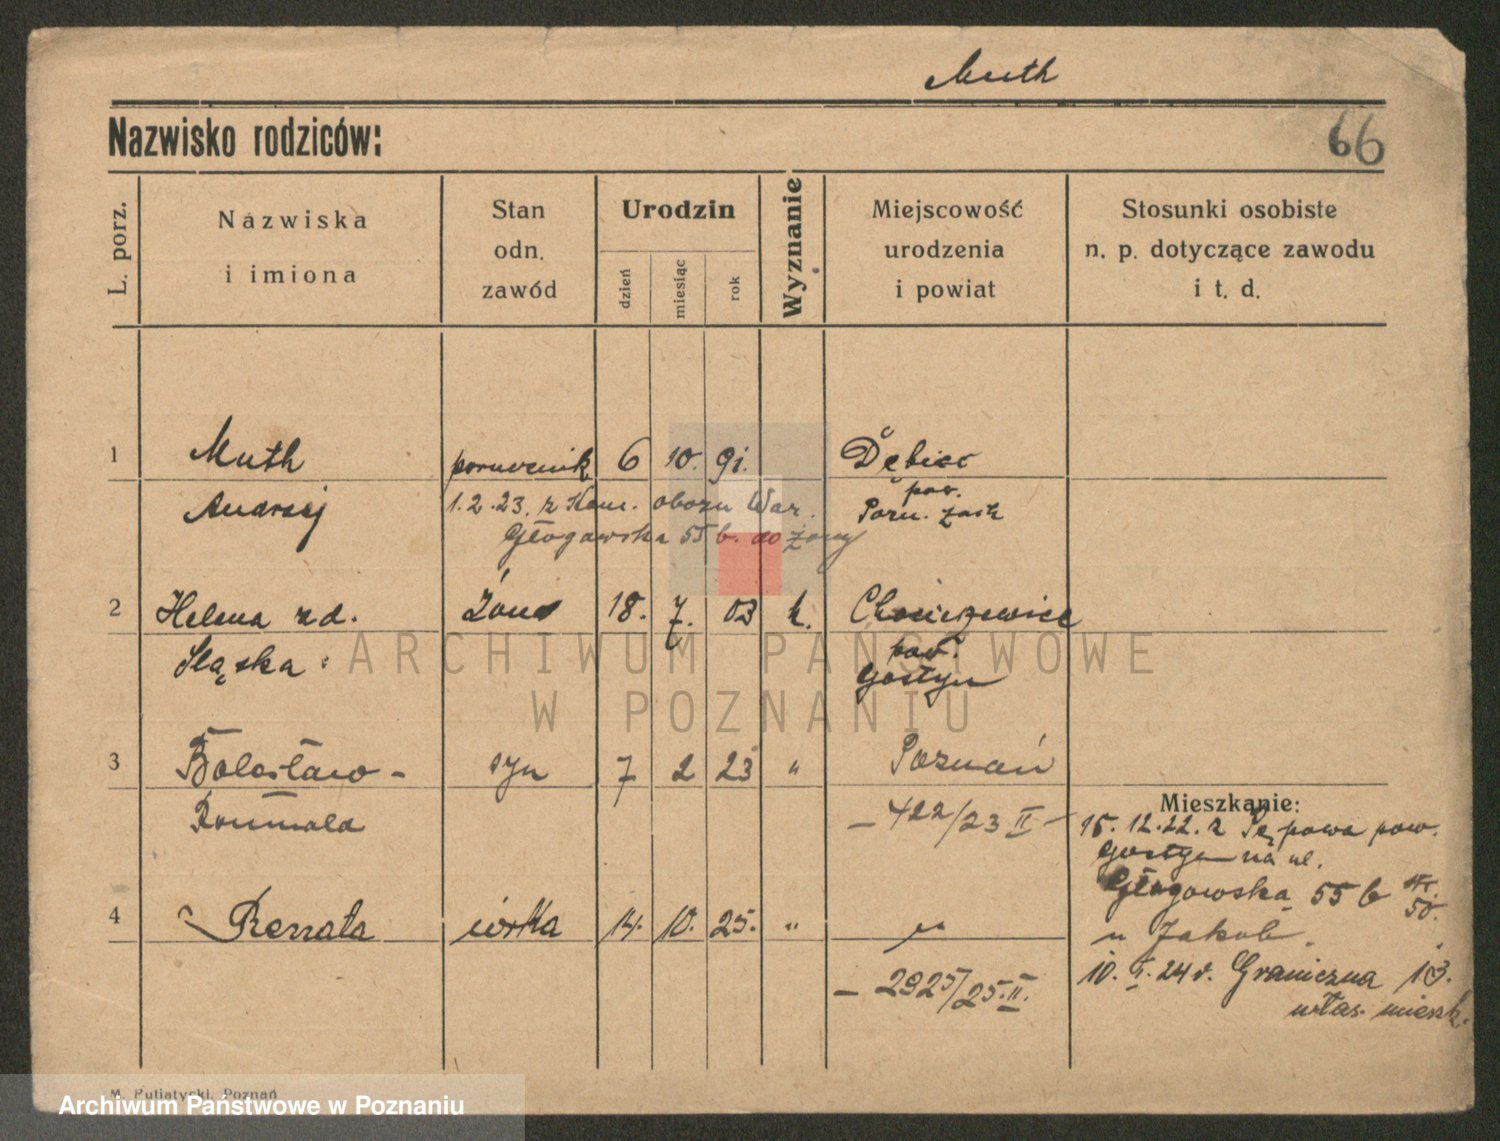 Muth
Nazwisko rodziców:
66
L. porz.
Nazwiska
i imiona
Stan
odn.
zawód
Urodzin
dzień
miesiąc
rok
Wyznanie
Miejscowość
urodzenia
i powiat
Stosunki osobiste
n. p. dotyczące zawodu
i t. d.
1 Muth porucznik 6 10. 91. Dębiec
Andrzej 1.2.23. z Kom. obozu War. pow.
Pozn. zach
Głogawska 55 b. do żony
2 Helena zd. żona 18. 7. 03 k. Chociczewice
Sląska pow.
Gostyn
ARCHIWUM PAŃSTWOWE
W POZNANIU
3 Bolesław - syn 7 2 23 " Poznań
Romuald - 422/23 II -
Mieszkanie:
15.12.22. z Pępowa pow.
Gostyn na ul.
Głogowska 55 b
50.
u Jakob.
4 Renata córka 14. 10. 25. " "
- 2925/25. II.
10. I. 24 r. Graniczna 13.
włas. mieszk.
M. Putiatycki, Poznań
Archiwum Państwowe w Poznaniu